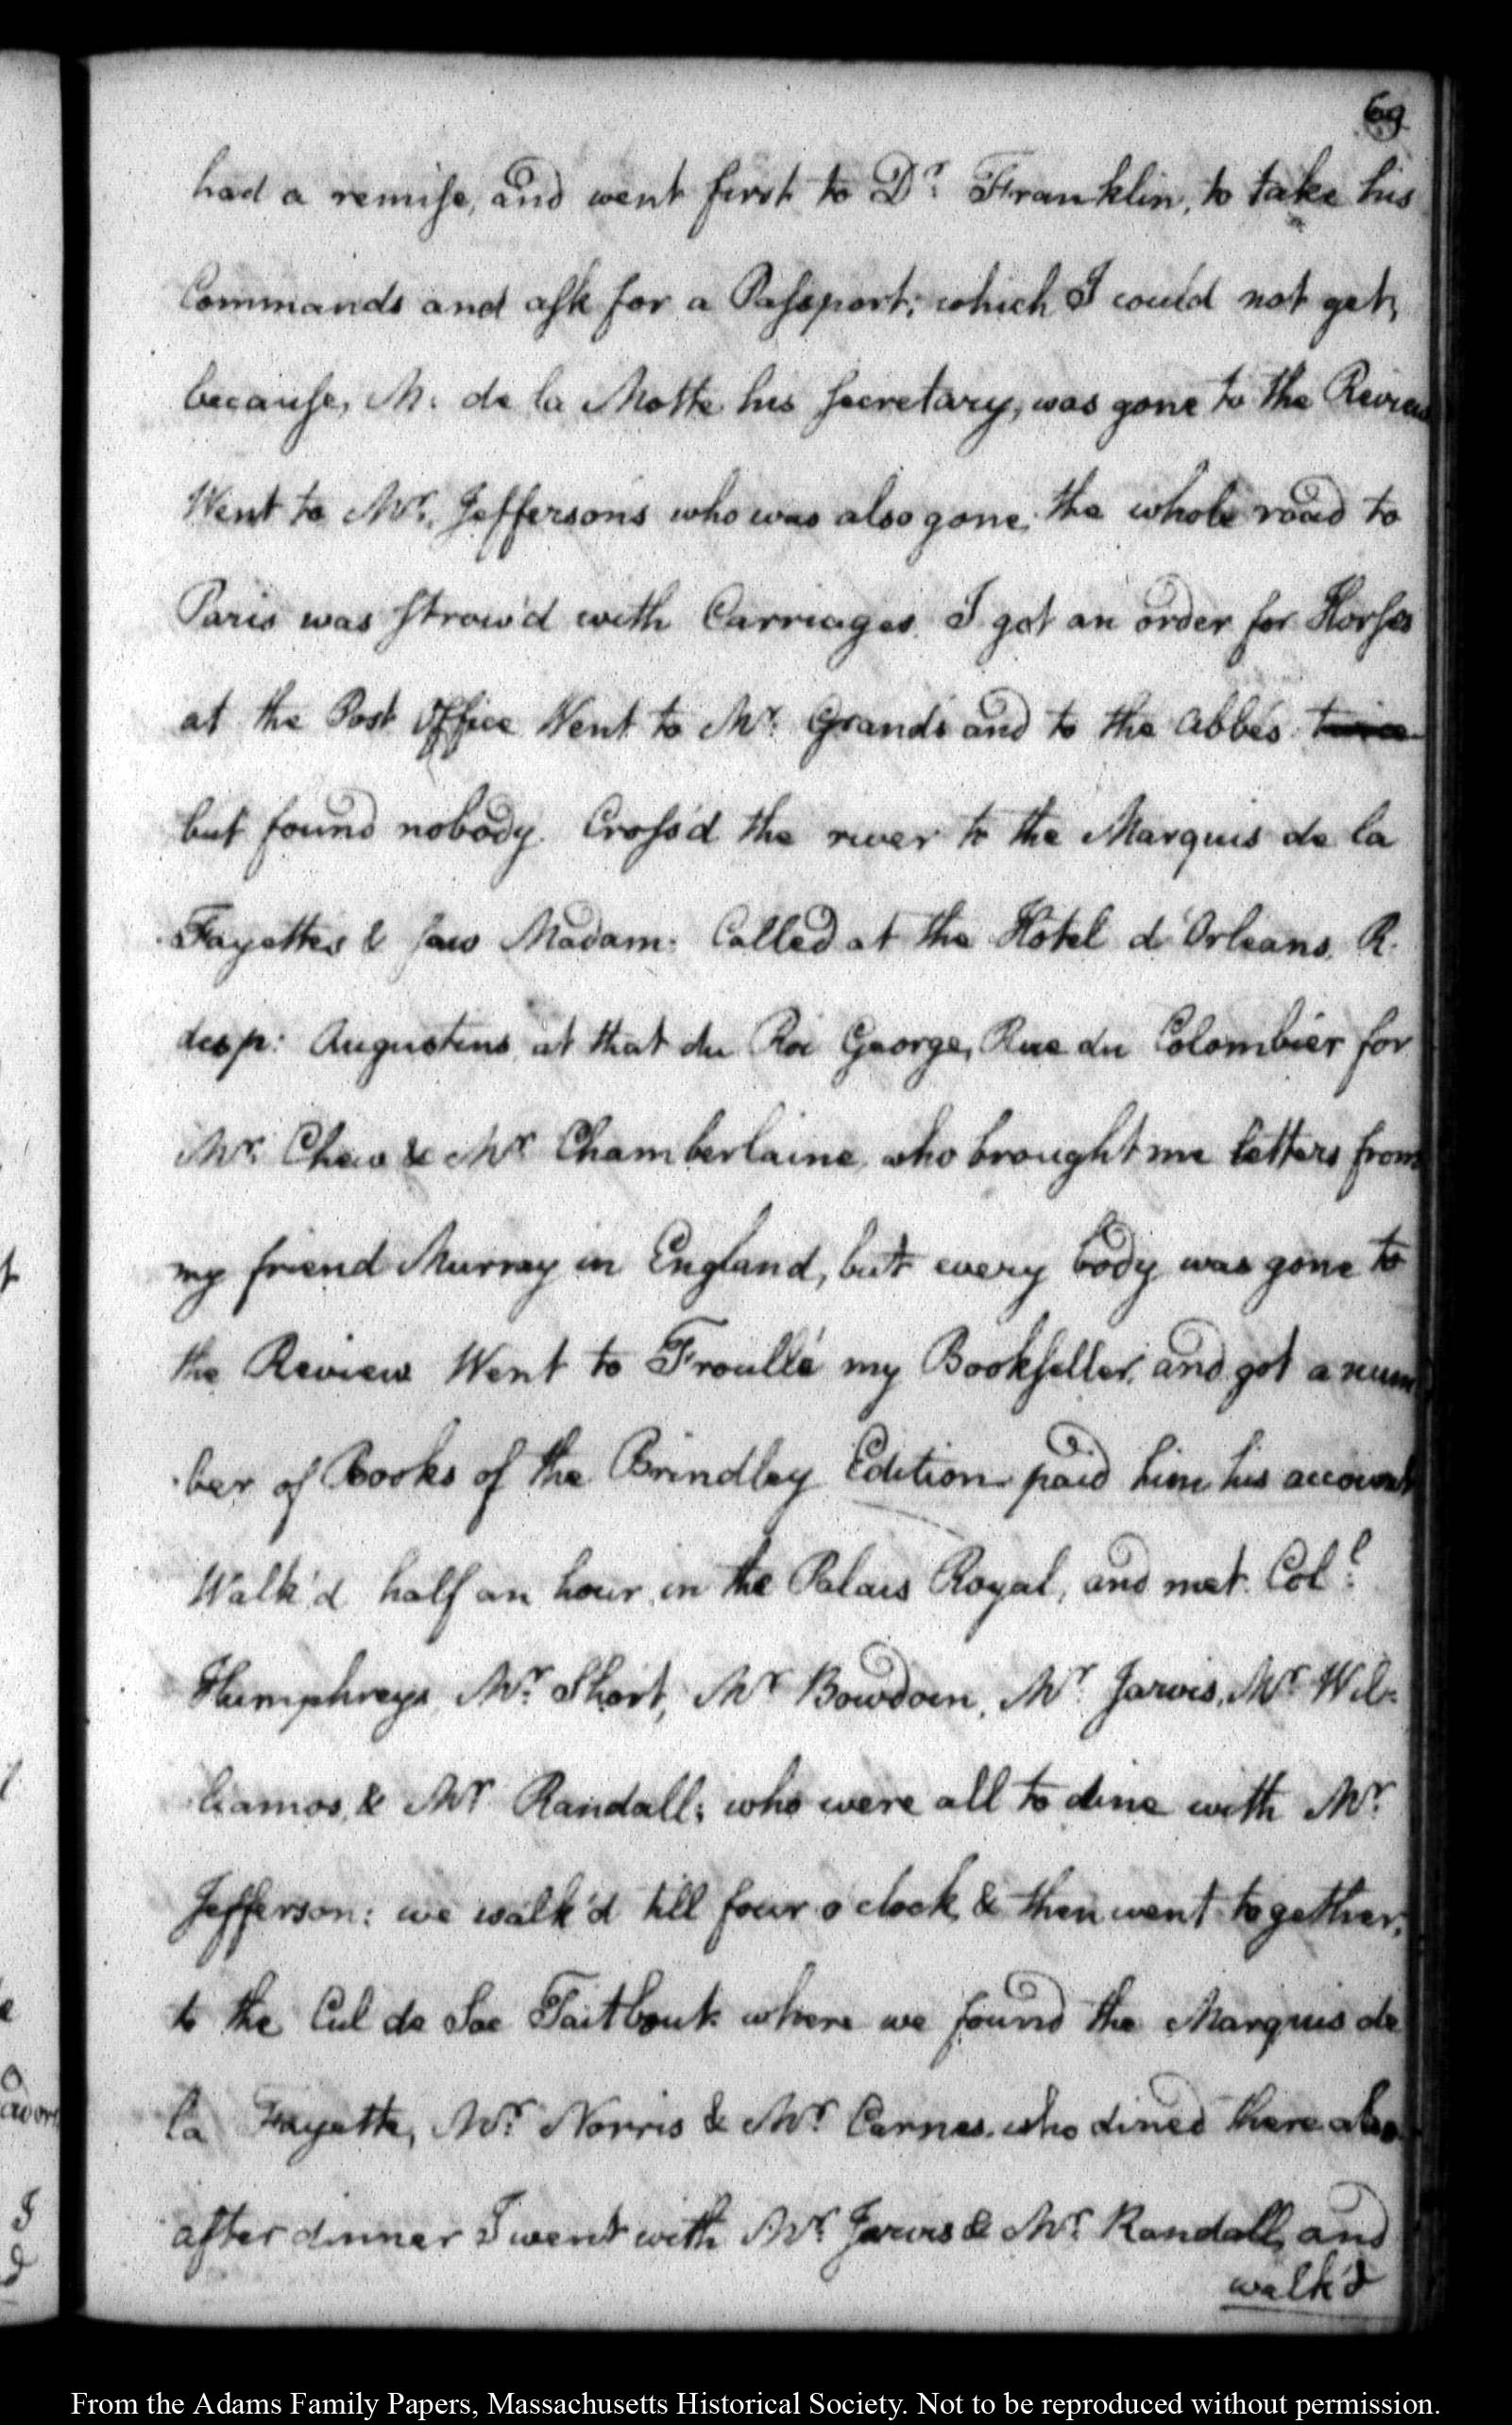 69
had a remise, and went first to Dr. Franklin, to take his
Commands and ask for a Passport; which I could not get,
because, M. de la Motte his secretary, was gone to the Review
Went to Mr. Jeffersons who was also gone, the whole road to
Paris was strow'd with Carriages. I got an order for Horses
at the Post Office Went to Mr. Grands and to the Abbés twice
but found nobody. Cross'd the river to the Marquis de la
Fayettes & saw Madam. Called at the Hotel d'Orleans. R.
des p: Augustins, at that du Roi George, Rue du Colombier for
Mr. Chew & Mr. Chamberlaine, who brought me letters from
my friend Murray in England, but every body was gone to
the Review Went to Froullé my Bookseller, and got a num
ber of Books of the Brindley Edition paid him his account
Walk'd half an hour in the Palais Royal, and met Coll.
Humphreys, Mr. Short, Mr. Bowdoin, Mr. Jarvis, Mr. Wil-
liamos, & Mr. Randall; who were all to dine with Mr.
Jefferson: we walk'd till four o clock, & then went together,
to the Cul de Sac Taitbout where we found the Marquis de
la Fayette, Mr. Norris & Mr. Carnes, who dined there also
after dinner I went with Mr. Jarvis & Mr. Randall, and
walk'd
From the Adams Family Papers, Massachusetts Historical Society. Not to be reproduced without permission.